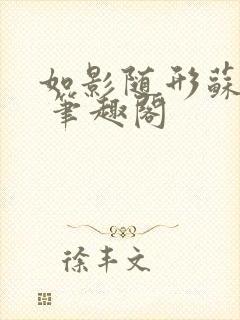 如影随形蘇
筆趣閣
徐丰文